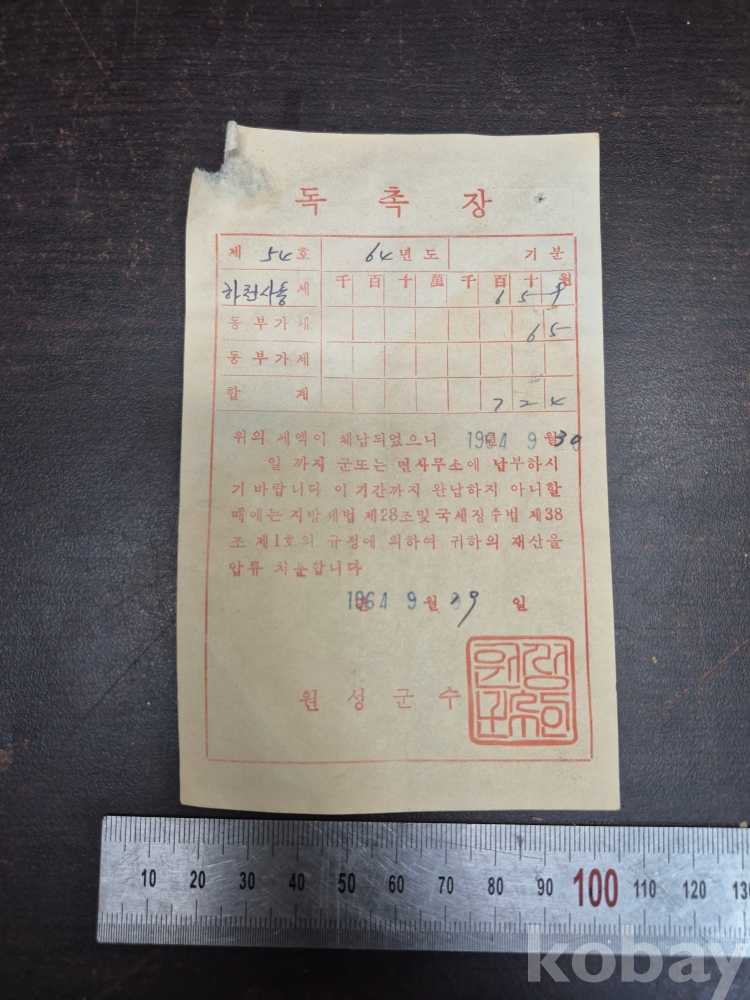 독 촉 장
제 54 호 64 년 도 기 분
세 千 百 十 萬 千 百 十 원
6 5 9
동 부 가 세 6 5
동 부 가 세
합 계 7 2 4
위의 세액이 체납되었으니 1964 9 월 30
일 까지 군또는 면사무소에 납부하시
기 바랍니다 이 기간까지 완납하지 아니할
때에는 지방세법 제28조및 국세징수법 제38
조 제1호의 규정에 의하여 귀하의 재산을
압류 처분합니다
1964 9 월 일
원 성 군 수
10 20 30 40 50 60 70 80 90 100 110 120 130
kobay